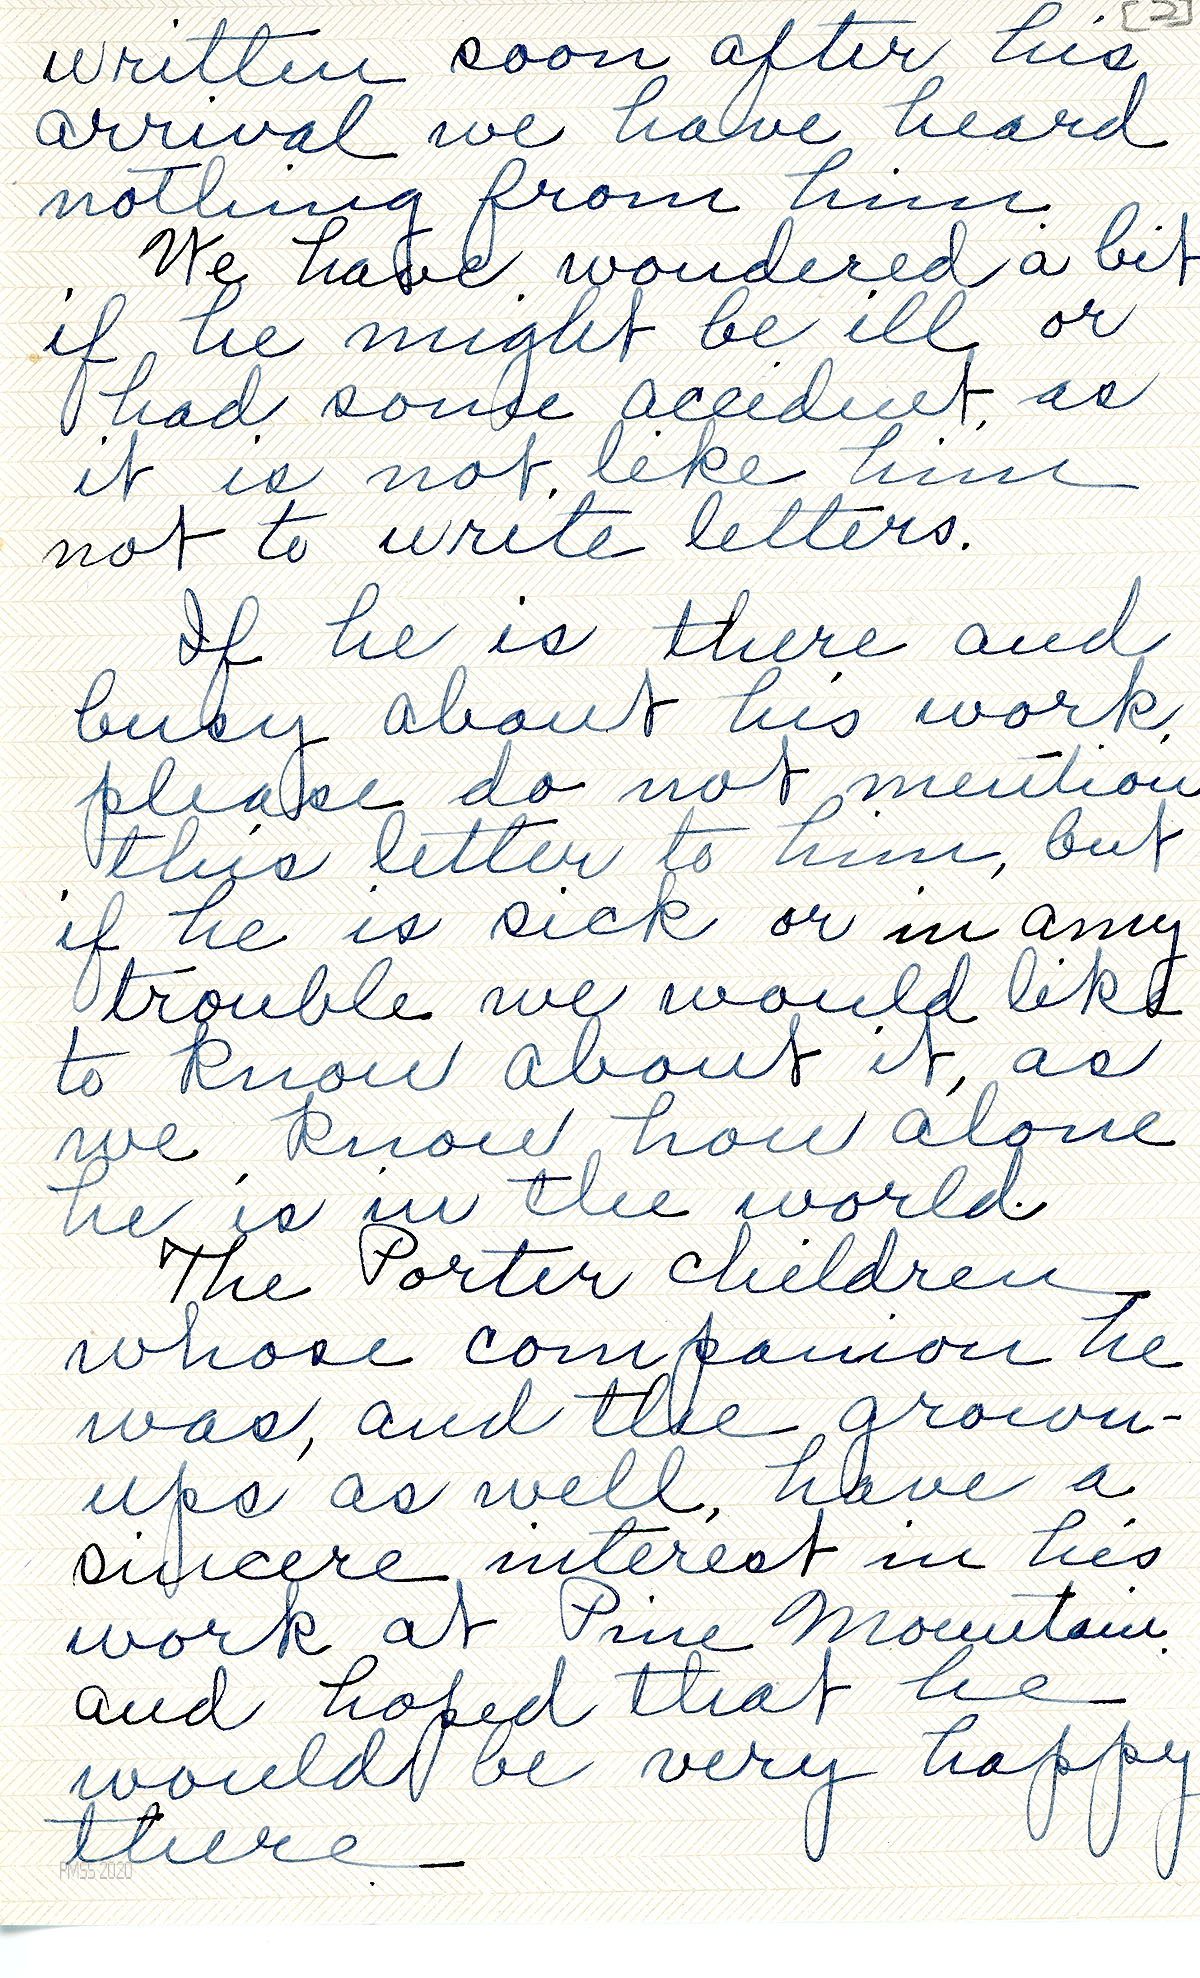 [2]
written soon after his
arrival we have heard
nothing from him.
We have wondered a bit
if he might be ill or
had some accident, as
it is not like him
not to write letters.
If he is there and
busy about his work,
please do not mention
this letter to him, but
if he is sick or in any
trouble we would like
to know about it, as
we know how alone
he is in the world.
The Porter children
whose companion he
was, and the grown-
ups as well, have a
sincere interest in his
work at Pine Mountain.
and hoped that he
would be very happy
there.
PMSS 2020